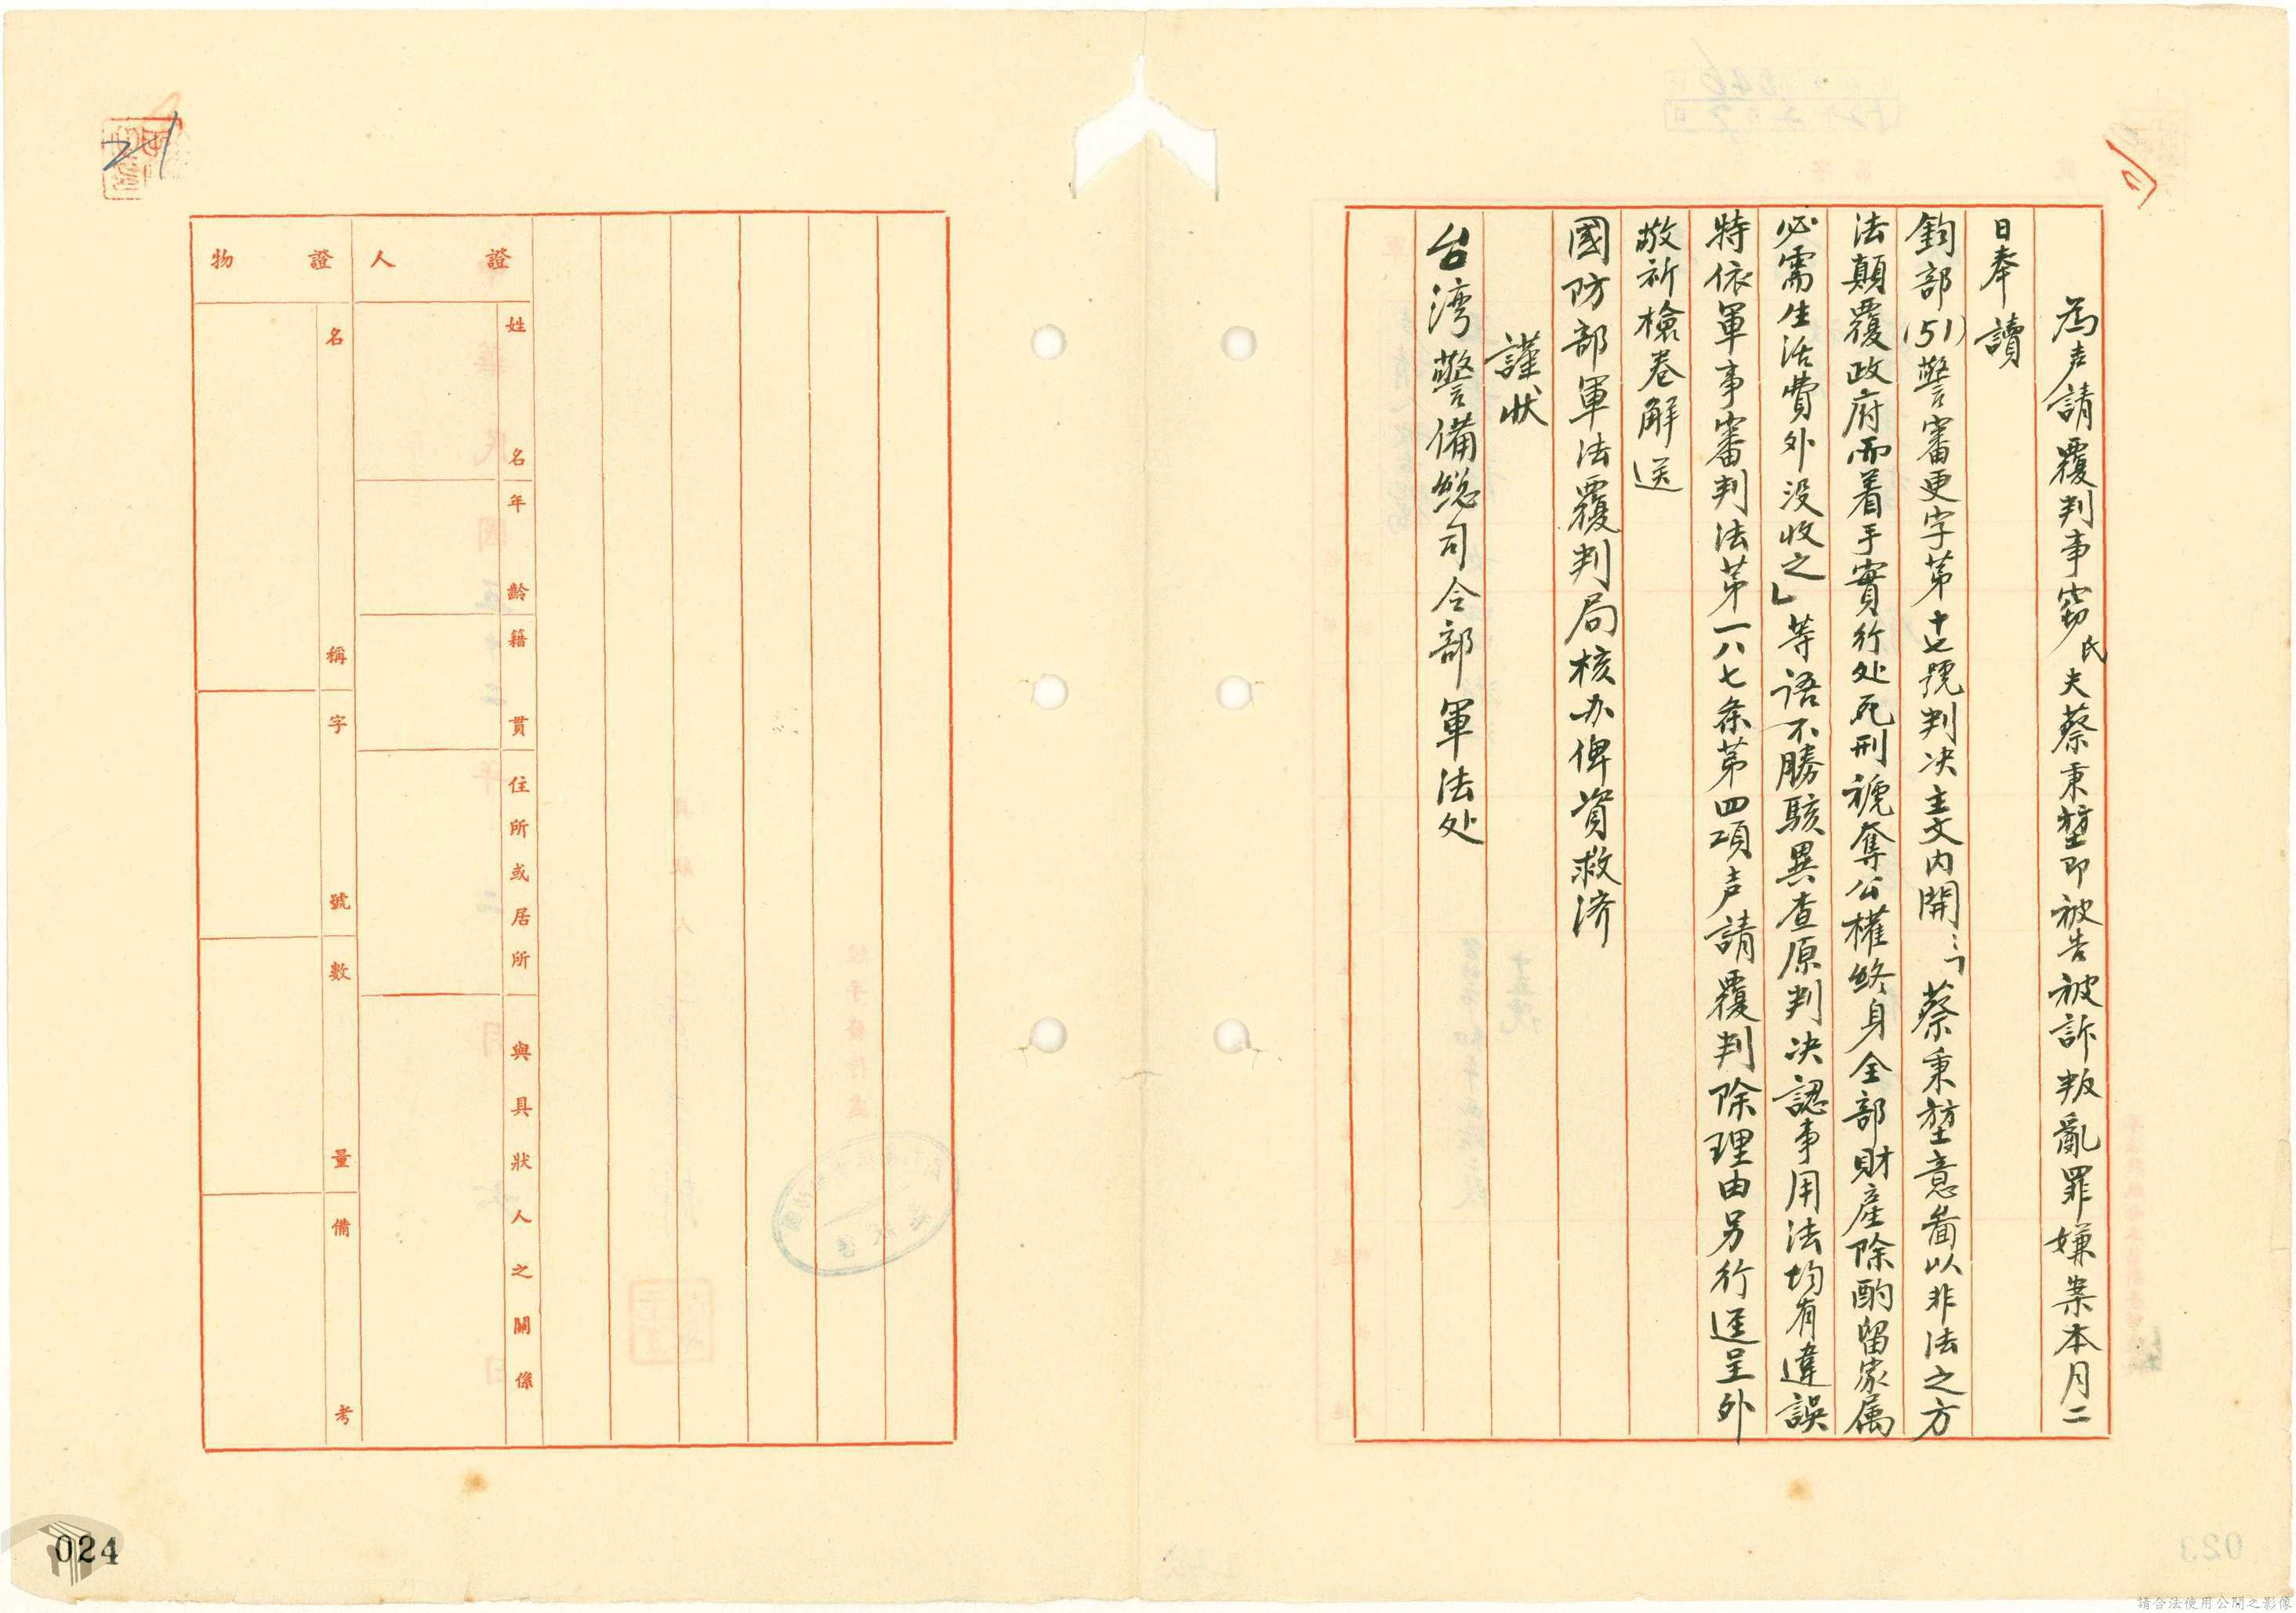 為声請覆判事窃氏夫蔡秉堃即被告被訴叛亂罪嫌案本月二
日奉讀
鈞部(51)警審更字第十七號判决主文内開:「蔡秉堃意啚以非法之方
法顛覆政府而着手實行处死刑褫奪公權終身全部財產除酌留家属
必需生活費外没收之」等語不勝駭異查原判决認事用法均有違誤
特依軍事審判法第一八七条第四項声請覆判除理由另行逕呈外
敬祈檢卷解送
國防部軍法覆判局核办俾資救济
謹狀
台湾警備総司令部軍法处
證人
姓名
年齡
籍貫
住所或居所
與具狀人之關係
證物
名稱
字號
數量
備考
21
024
023
請合法使用公開之影像